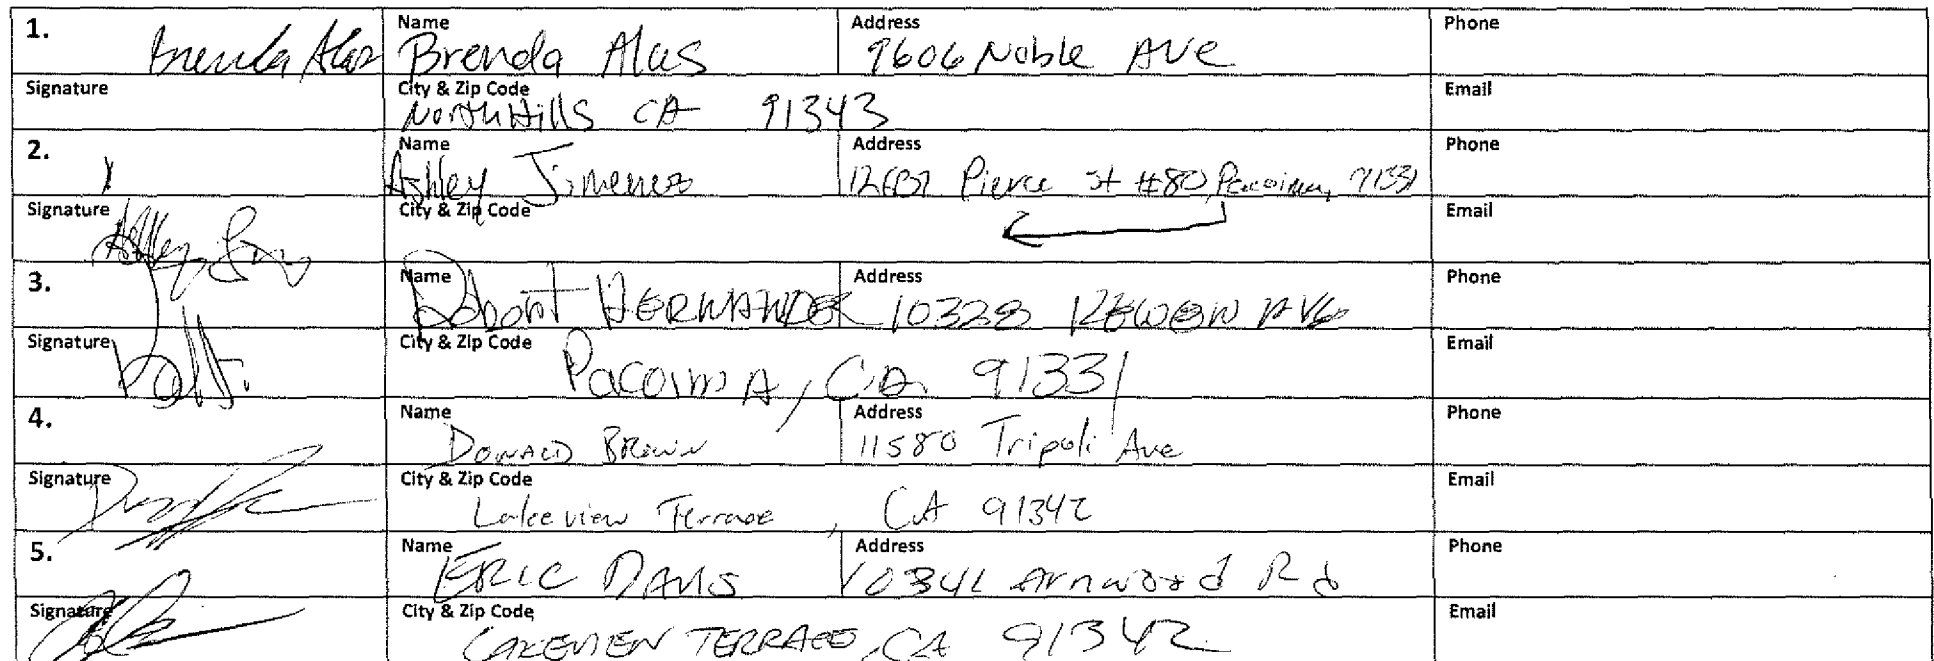 1. Brenda Alas Name Brenda Alas Address 9606 Noble Ave Phone
Signature City & Zip Code North Hills CA 91343 Email
2. Name Ashley Jimenez Address Pierce st #80, Pacoima, 91331 Phone
Signature City & Zip Code Email
3. Name Robert HERNANDEZ Address 10328 KEWEN AVE Phone
Signature City & Zip Code Pacoima, CA 91331 Email
4. Name Donald Brown Address 11580 Tripoli Ave Phone
Signature City & Zip Code Lakeview Terrace, CA 91342 Email
5. Name ERIC DAVIS Address Arnwood Rd Phone
Signature City & Zip Code LAKEVIEW TERRACE, CA 91342 Email